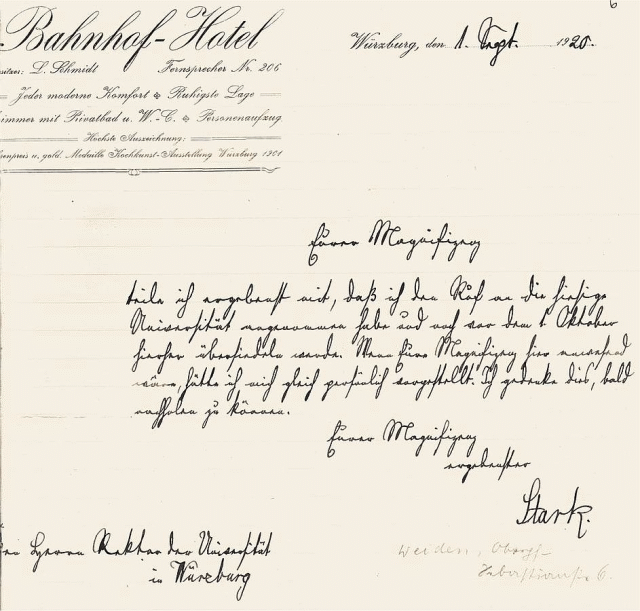 6
Bahnhof-Hotel
sitzer: L. Schmidt Fernsprecher Nr. 206
Jeder moderne Komfort & Ruhigste Lage
immer mit Privatbad u. W.-C. & Personenaufzug
Höchste Auszeichnung:
renpreis u. gold. Medaille Kochkunst-Ausstellung Würzburg 1901
Würzburg, den 1. Sept. 1920.
Eurer Magnifizenz
teile ich ergebenst mit, daß ich den Ruf an die hiesige
Universität angenommen habe und noch vor dem 1. Oktober
hierher übersiedeln werde. Wenn Eure Magnifizenz hier anwesend
wären, hätte ich mich gleich persönlich vorgestellt. Ich gedenke dies, bald
nachholen zu können.
Eurer Magnifizenz
ergebenster
Stark.
en Herrn Rektor der Universität
in Würzburg
Weiden, Oberpf-
Sebastianstr 6.